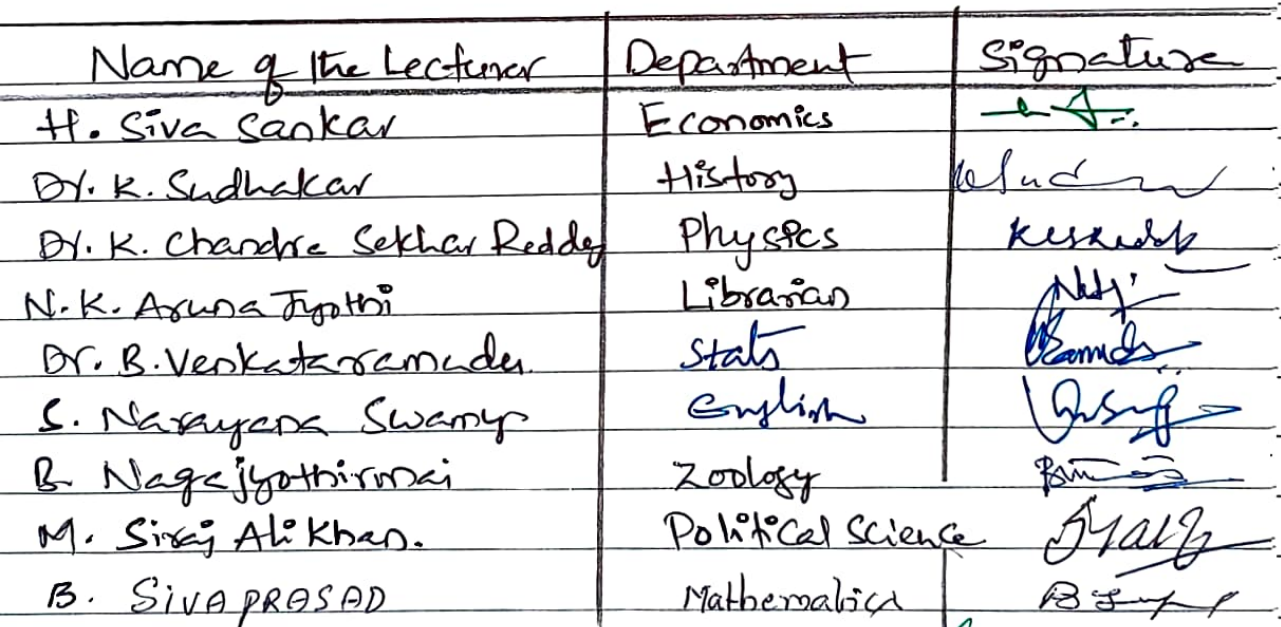 Name of the Lecturer Department Signature
H. Siva Sankar Economics
Dr. K. Sudhakar History
Dr. K. Chandra Sekhar Reddy Physics
N. K. Aruna Jyothi Librarian
Dr. B. Venkataramudu. Stats
S. Narayana Swamy English
B. Nagajyothirmai Zoology
M. Siraj Ali Khan. Political Science
B. SIVA PRASAD Mathematics